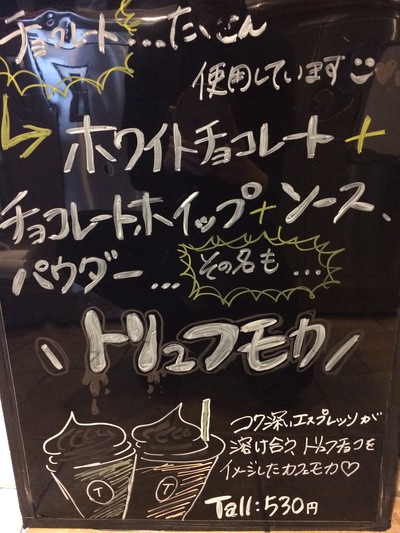 チョコレート...たくさん
使用しています
ホワイトチョコレート+
チョコレートホイップ+ソース、
パウダー...
その名も...
トリュフモカ
コク深いエスプレッソが
溶け合う、トリュフチョコを
イメージしたカフェモカ♡
Tall:530円
T
T